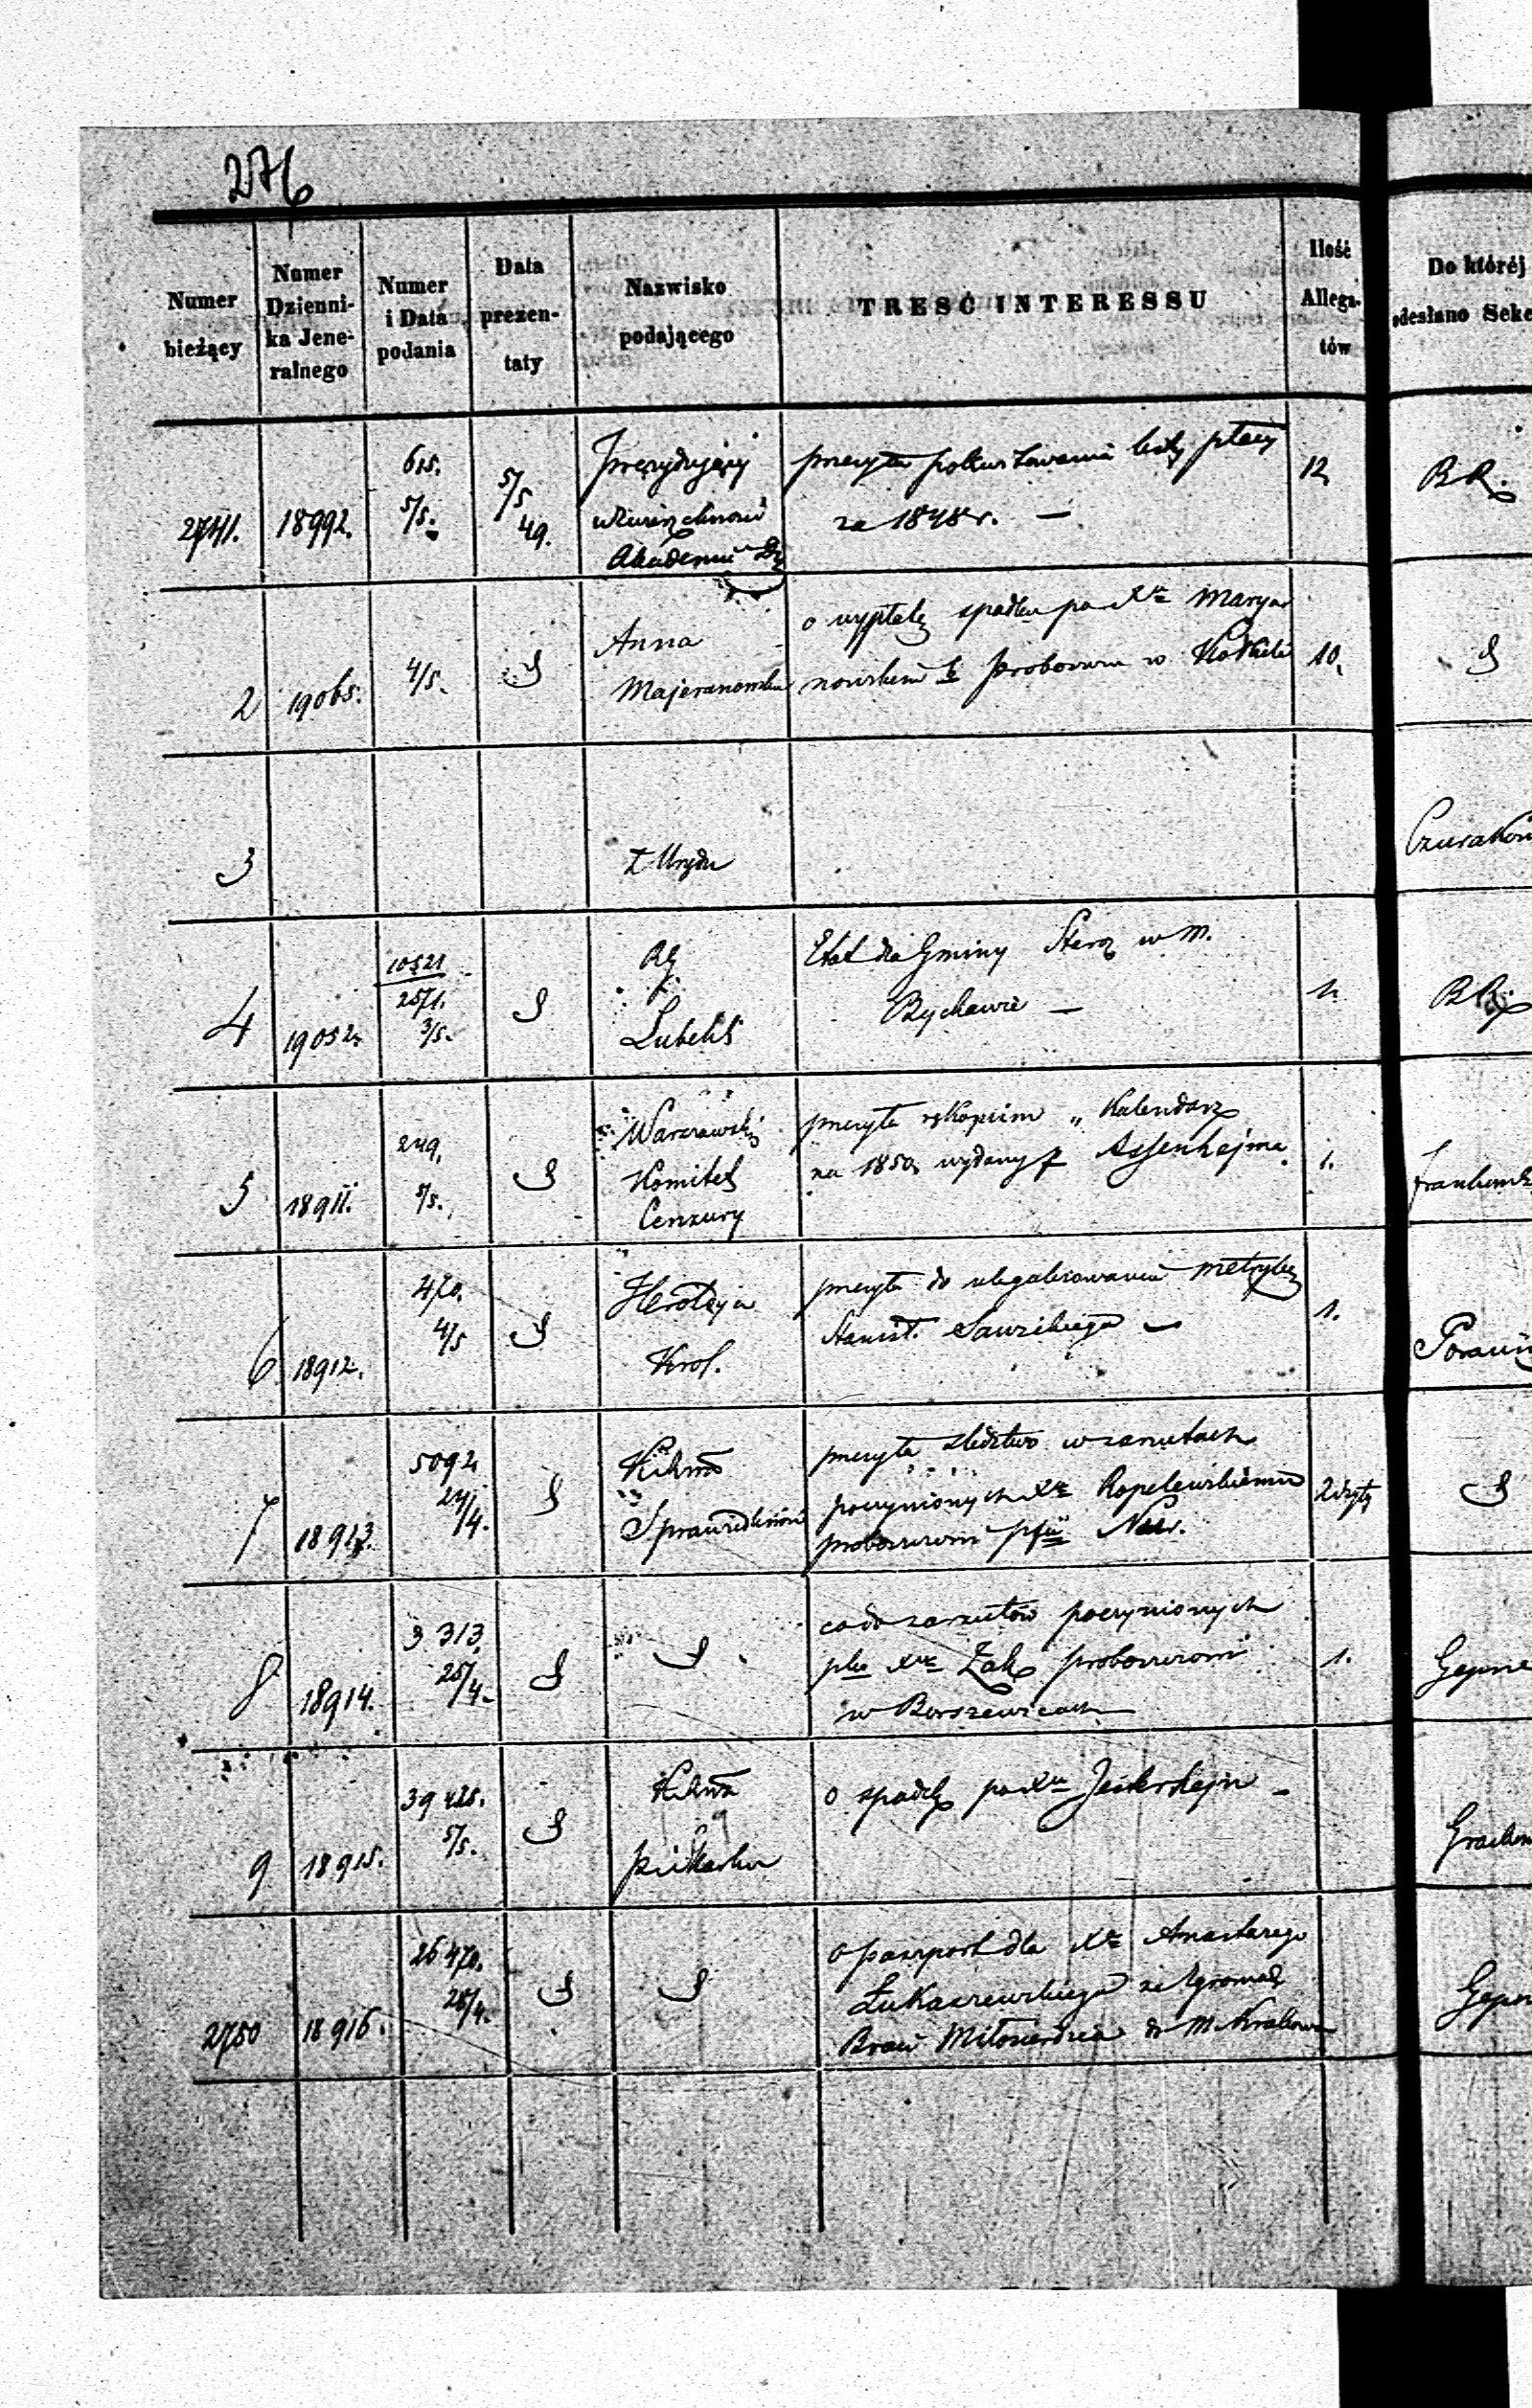 276
Numer
bieżący
Numer
Dzienni-
ka Jene-
ralnego
Numer
i Data
podania
Data
prezen-
taty
Nazwisko
podającego
TREŚĆ INTERESSU
Ilość
Allega-
tów
Do któréj
odesłano Sekc
2741.
18992.
615.
5/5.
5/5
49.
Prezydujący
Akademii
przesyła pokwitowania listy płacy
za 1848 r. —
12
BR.
2
19065.
4/5.
Anna
Majeranowska
o wypłatę spadku po Xze Maryar
nowskim Proboszczu w
10.
3
z Urzędu
4
19052
10521
2571.
3/5.
RG
Lubelski
Etat dla Gminy Staroz w m.
Bychawie —
1.
5
18911.
249.
5/5.
Warszawski
Komitet
Cenzury
przesyła rękopism „ Kalendarz
na 1850 wydany p Assenhejma
1.
6
18912.
470.
4/5
Heroldya
Król.
przesyła do zalegalizowania metrykę
Stanisł. Sawickiego —
1.
7
18913.
5092
24/4.
Sprawiedliwości
przesyła śledztwo w zarzutach
poczynionych Xze Kopelewskiemu
proboszczowi
8
18914.
3 313.
25/4.
co do zarzutów poczynionych
Xze Żak proboszczowi
w Borszewicach
1.
9
18915.
39 425.
5/5.
o spadek po Xu
2750
18916.
26 470.
25/4.
o paszport dla Xze Anastazego
Łukaszewskiego ze Zgromadz
Braci Miłosierdzia do M. Krakowa